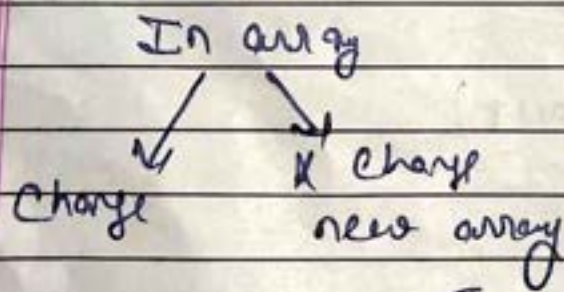 In array
Change
X Change
new array